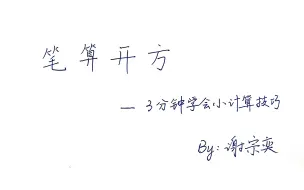 笔算开方
— 3分钟学会小计算技巧
By: 谢宗奕